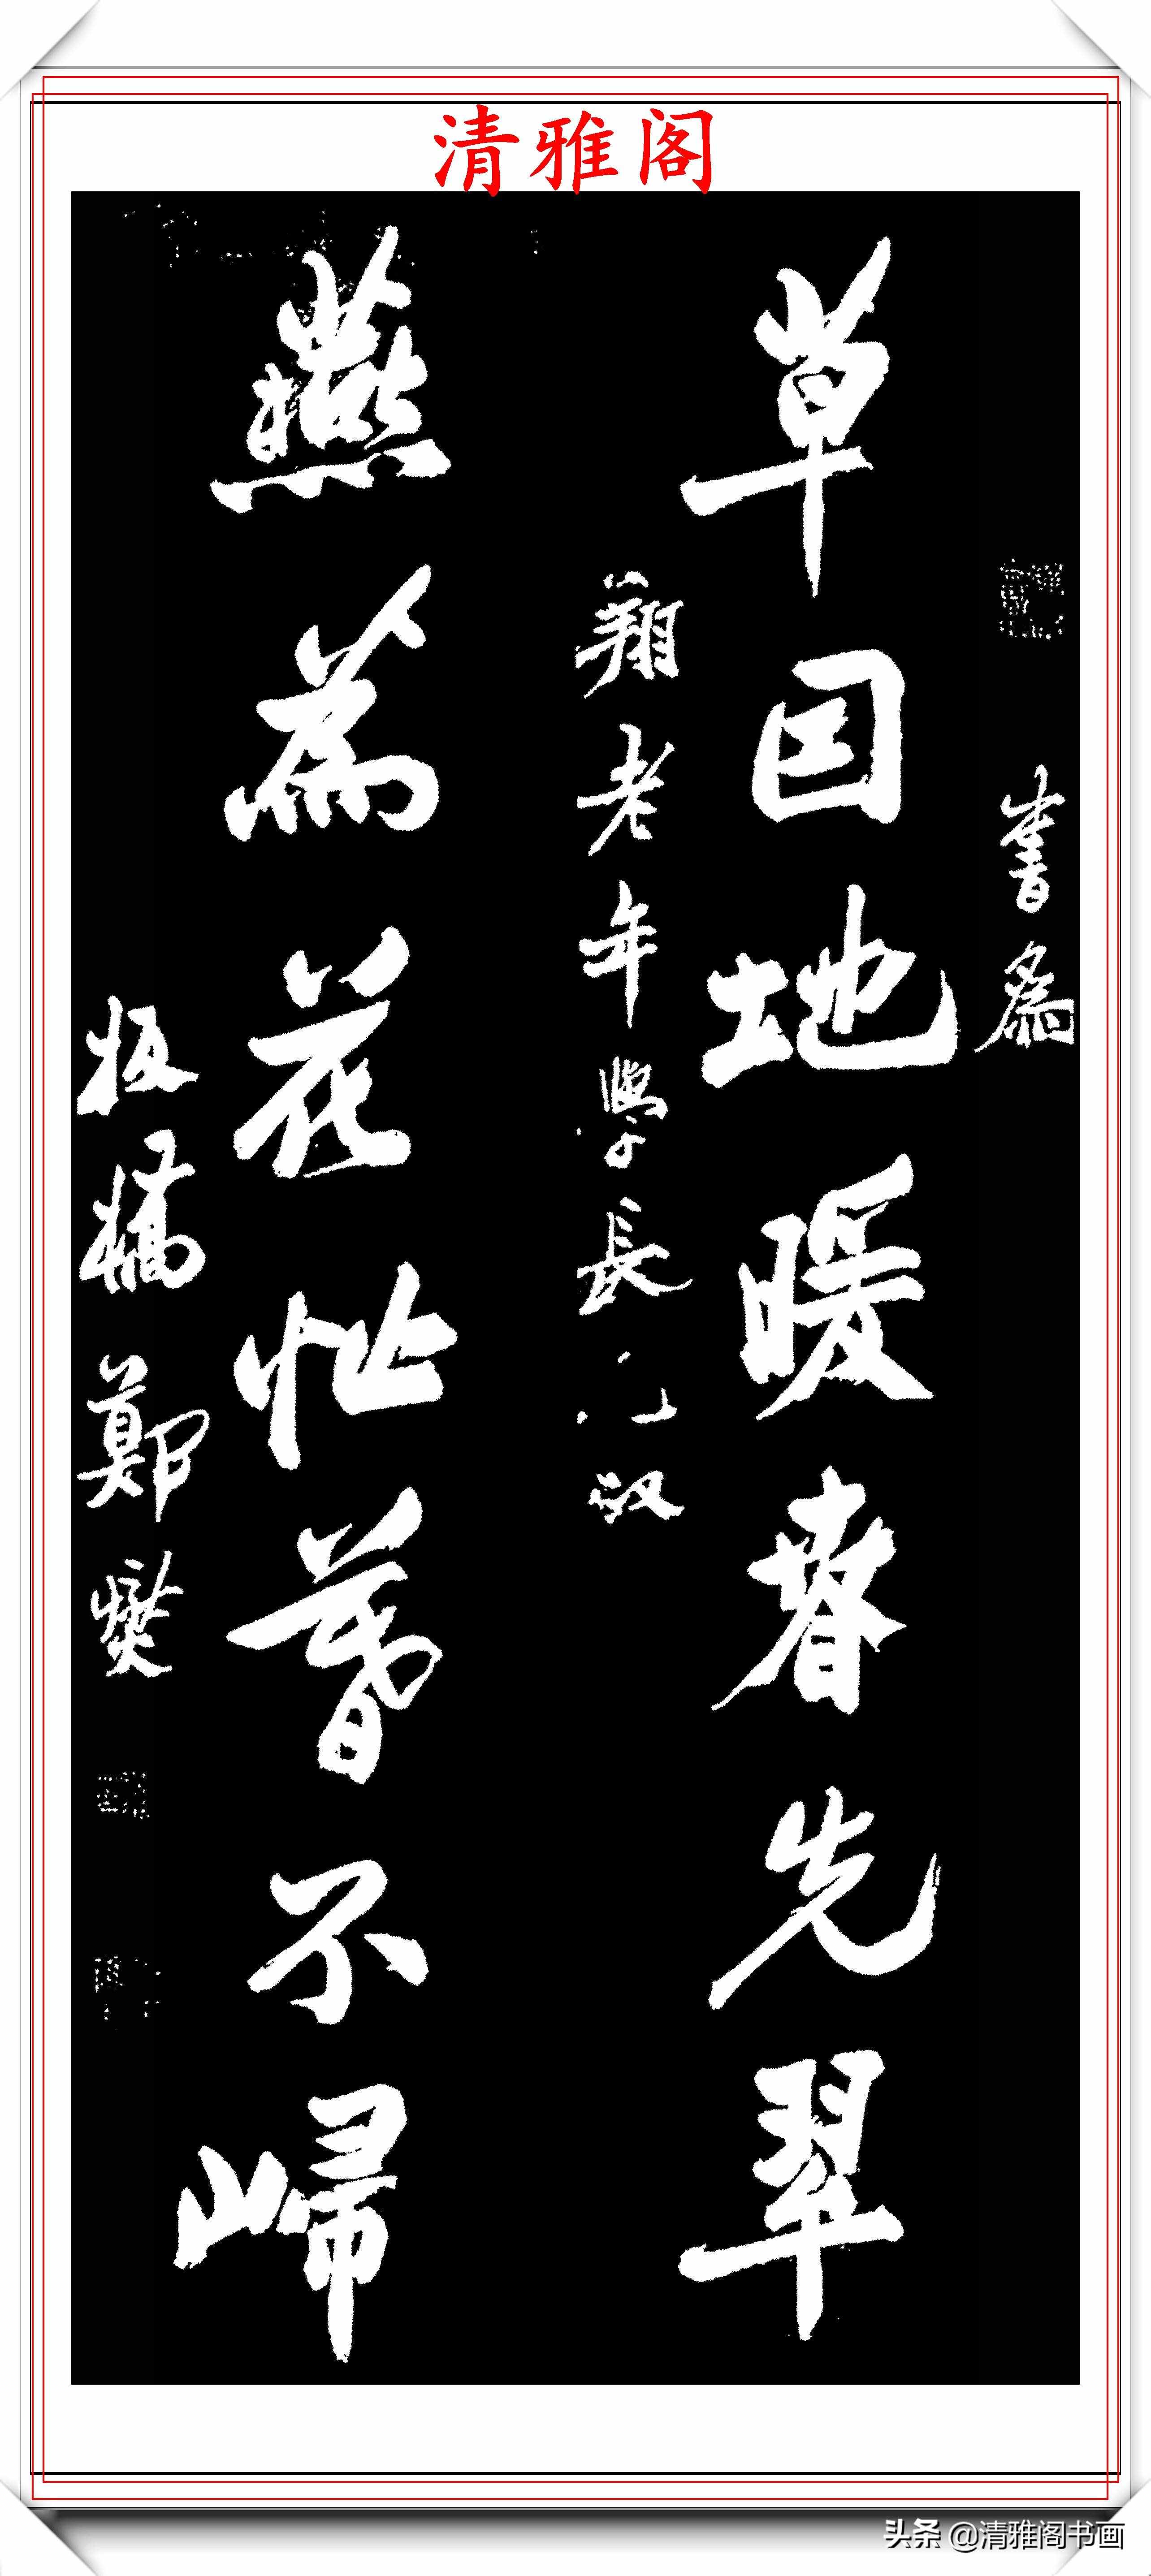 清雅阁
書爲
草因地暖春先翠
翔老年學長兄政
燕爲花忙暮不歸
板橋鄭燮
头条 @清雅阁书画